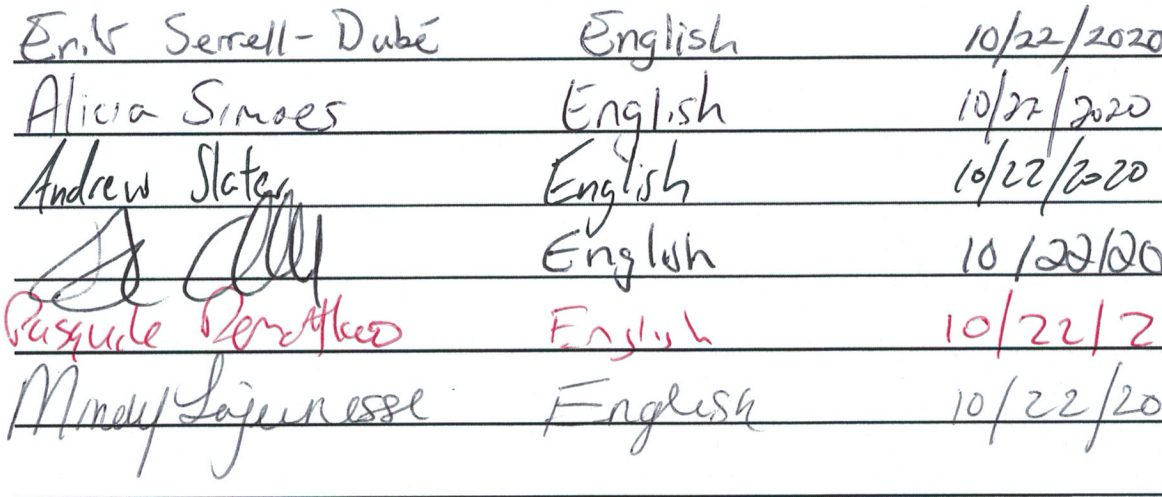 Erik Serrell-Dubé English 10/22/2020
Alicia Simoes English 10/22/2020
Andrew Slater English 10/22/2020
English 10/22/20
Pasquale English 10/22/2
Mindy Lajeunesse English 10/22/20